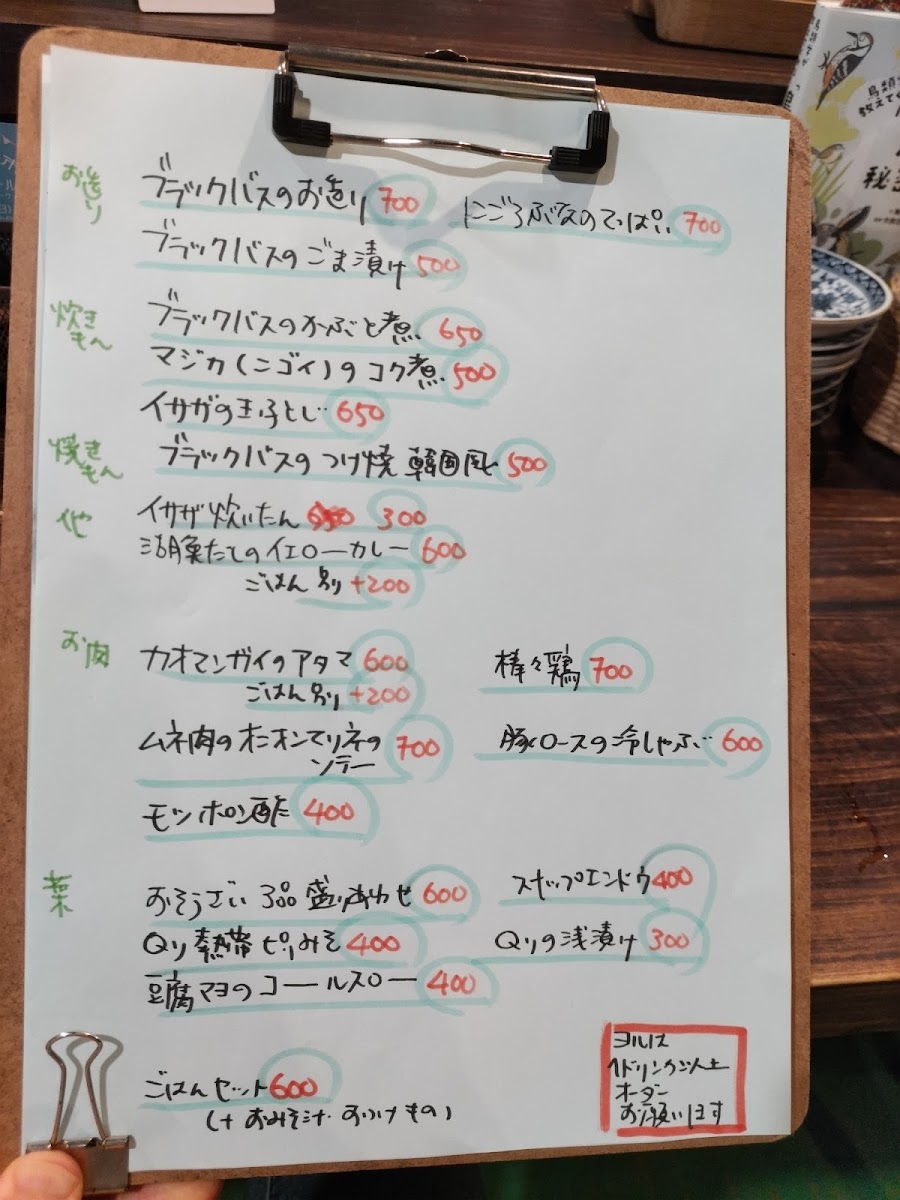 お造り
ブラックバスのお造り 700
にごろぶなのてっぱい 700
ブラックバスのごま漬け 500
炊きもん
ブラックバスのかぶと煮 650
マジカ(ニゴイ)のコク煮 500
イサザの玉子とじ 650
焼きもん
ブラックバスのつけ焼 韓国風 500
他
イサザ炊いたん 300
湖魚だしのイエローカレー 600
ごはん別 +200
お肉
カオマンガイのアタマ 600
ごはん別 +200
棒々鶏 700
ムネ肉のオニオンマリネの
ソテー 700
豚ロースの冷しゃぶ 600
モツポン酢 400
菜
おそうざい3品盛りあわせ 600
スナップエンドウ 400
Qリ熱帯ピリみそ 400
Qリの浅漬け 300
豆腐マヨのコールスロー 400
ごはんセット 600
(+おみそ汁・おつけもの)
ヨルは
1ドリンク以上
オーダー
お願いします
鳥類
教えてく
秘